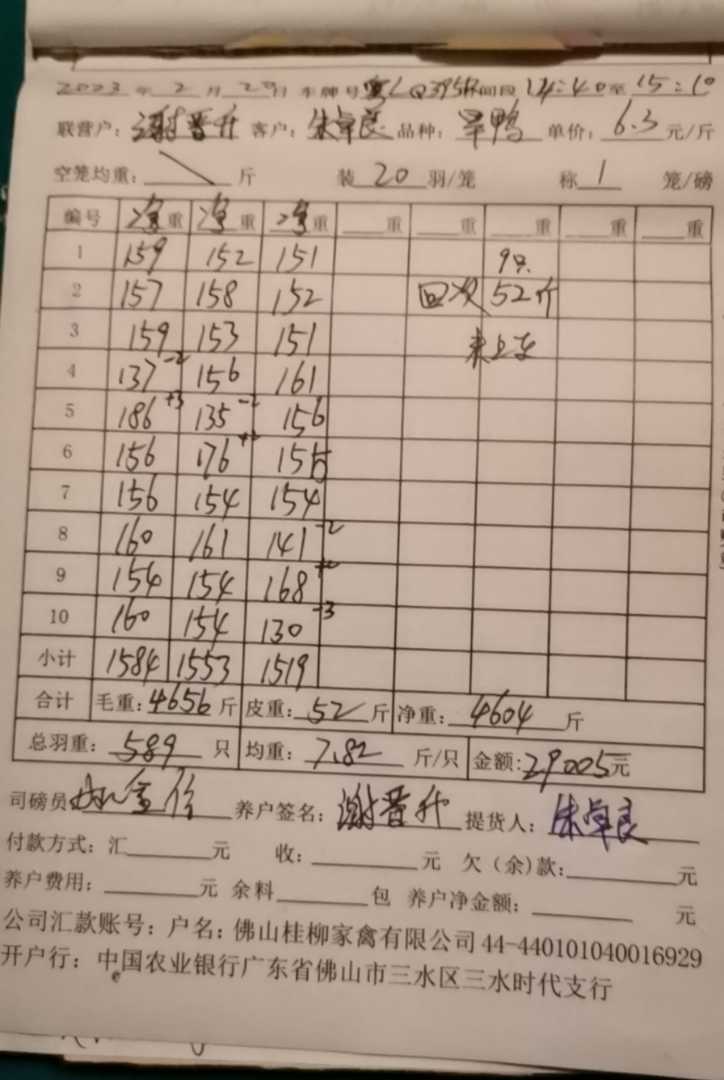 2023 年 2 月 20日 车牌号 粤LQ395R 间段 14:40 至 15:10
联营户: 谢晋升 客户: 朱卓良 品种: 旱鸭 单价: 6.3 元/斤
空笼均重: \ 斤 装 20 羽/笼 称 1 笼/磅
编号 净重 净重 净重 重 重 重 重 重
1 159 152 151 9只
2 157 158 152 回收 52斤
3 159 153 151 未上车
4 137 -2 156 161
5 186 +3 135 -2 156
6 156 176 155
7 156 154 154
8 160 161 141 -2
9 154 154 168
10 160 154 130 -3
小计 1584 1553 1519
合计 毛重: 4656 斤 皮重: 52 斤 净重: 4604 斤
总羽重: 589 只 均重: 7.82 斤/只 金额: 29005元
司磅员 养户签名: 谢晋升 提货人: 朱卓良
付款方式: 汇 元 收: 元 欠(余)款: 元
养户费用: 元 余料 包 养户净金额: 元
公司汇款账号: 户名: 佛山桂柳家禽有限公司 44-440101040016929
开户行: 中国农业银行广东省佛山市三水区三水时代支行